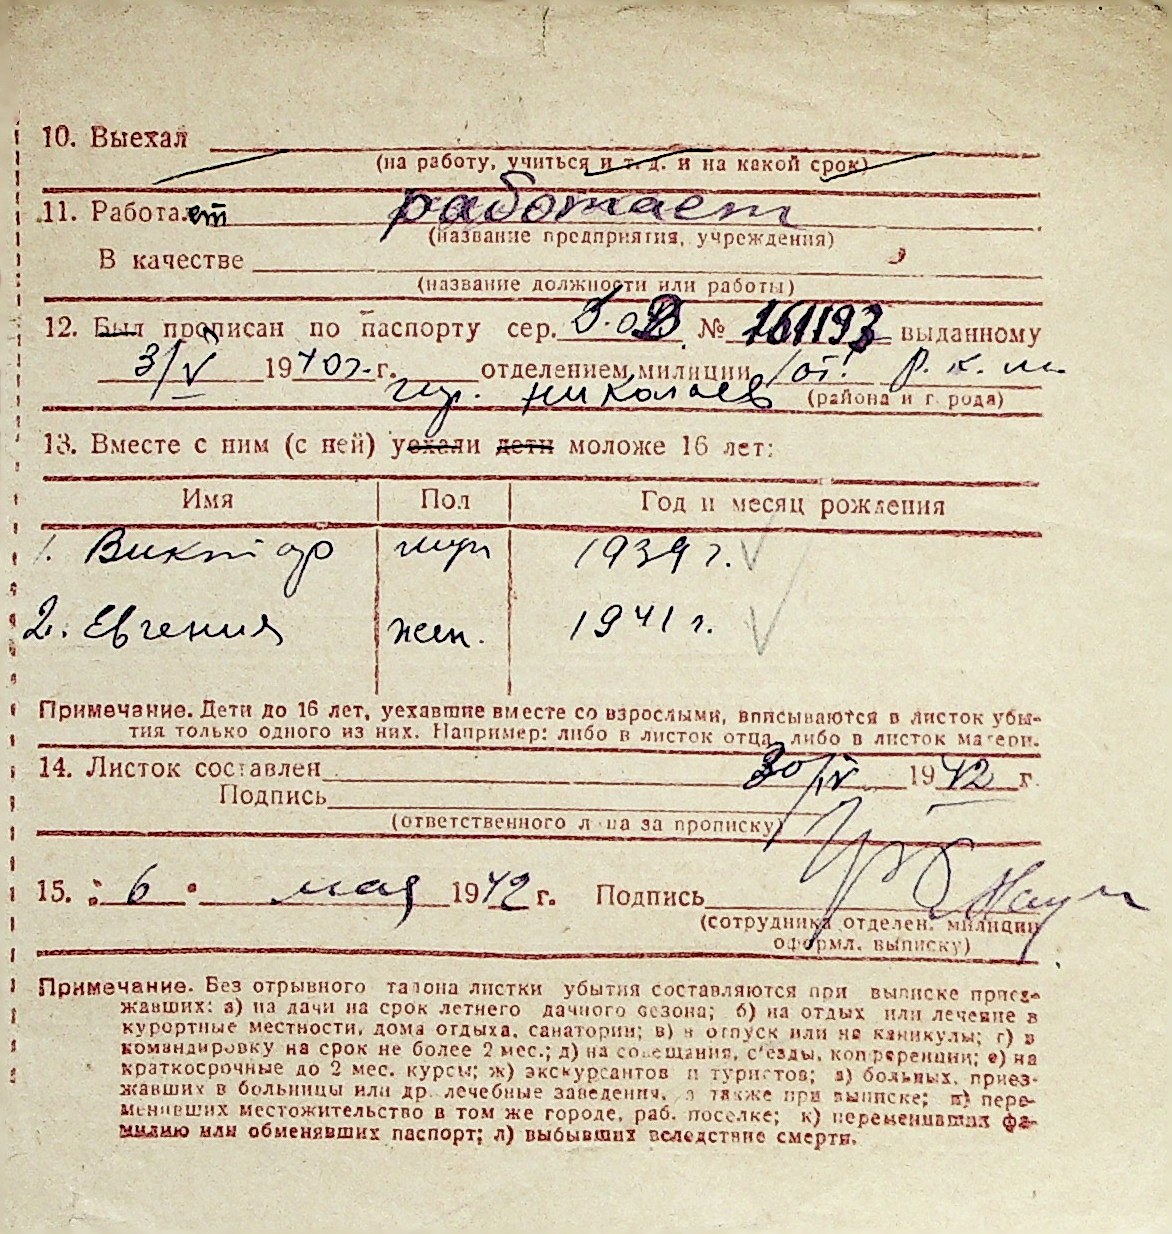 10. Выехал
(на работу, учиться и т. д. и на какой срок)
11. Работает работает
(название предприятия, учреждения)
В качестве
(название должности или работы)
12. Был прописан по паспорту сер. № 161193 выданному
3/V 1940г. г. отделением милиции 1от. р. к. м.
гор. Николаев (района и города)
13. Вместе с ним (с ней) уехали дети моложе 16 лет:
Имя Пол Год и месяц рождения
1. Виктор муж 1939 г.
2. Евгения жен. 1941 г.
Примечание. Дети до 16 лет, уехавшие вместе со взрослыми, вписываются в листок убы-
тия только одного из них. Например: либо в листок отца, либо в листок матери.
14. Листок составлен 30/IV 1942 г.
Подпись
(ответственного лица за прописку)
15. 6 мая 1942 г. Подпись
(сотрудника отделен. милиции
оформл. выписку)
Примечание. Без отрывного талона листки убытия составляются при выписке приез-
жавших: а) на дачи на срок летнего дачного сезона; б) на отдых или лечение в
курортные местности, дома отдыха, санатории; в) в отпуск или на каникулы; г) в
командировку на срок не более 2 мес.; д) на совещания, с'езды, конференции; е) на
краткосрочные до 2 мес. курсы; ж) экскурсантов и туристов; з) больных, приез-
жавших в больницы или др. лечебные заведения, а также при выписке; и) пере-
менивших местожительство в том же городе, раб. поселке; к) переменивших фа-
милию или обменявших паспорт; л) выбывших вследствие смерти.